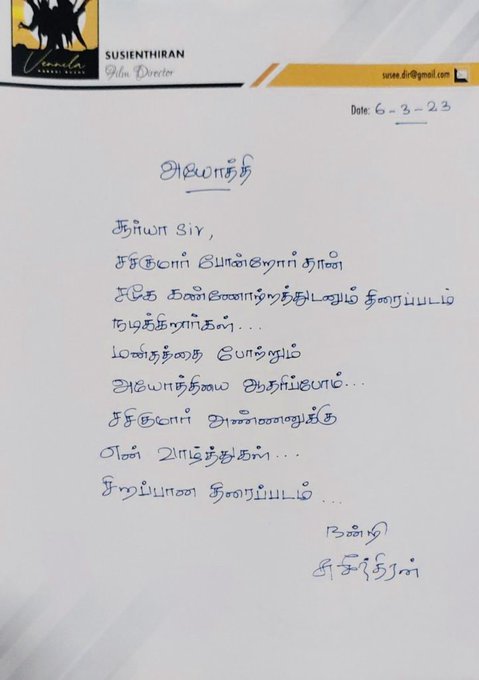 Vennila
SUSIENTHIRAN
Film Director
susee.dir@gmail.com
Date: 6-3-23
அயோத்தி
சூர்யா Sir,
சசிகுமார் போன்றோர் தான்
சமூக கண்ணோற்றத்துடனும் திரைப்படம்
நடிக்கிறார்கள்...
மனிதத்தை போற்றும்
அயோத்தியை ஆதரிப்போம்...
சசிகுமார் அண்ணனுக்கு
என் வாழ்த்துகள்...
சிறப்பான திரைப்படம்...
நன்றி
சுசீந்திரன்